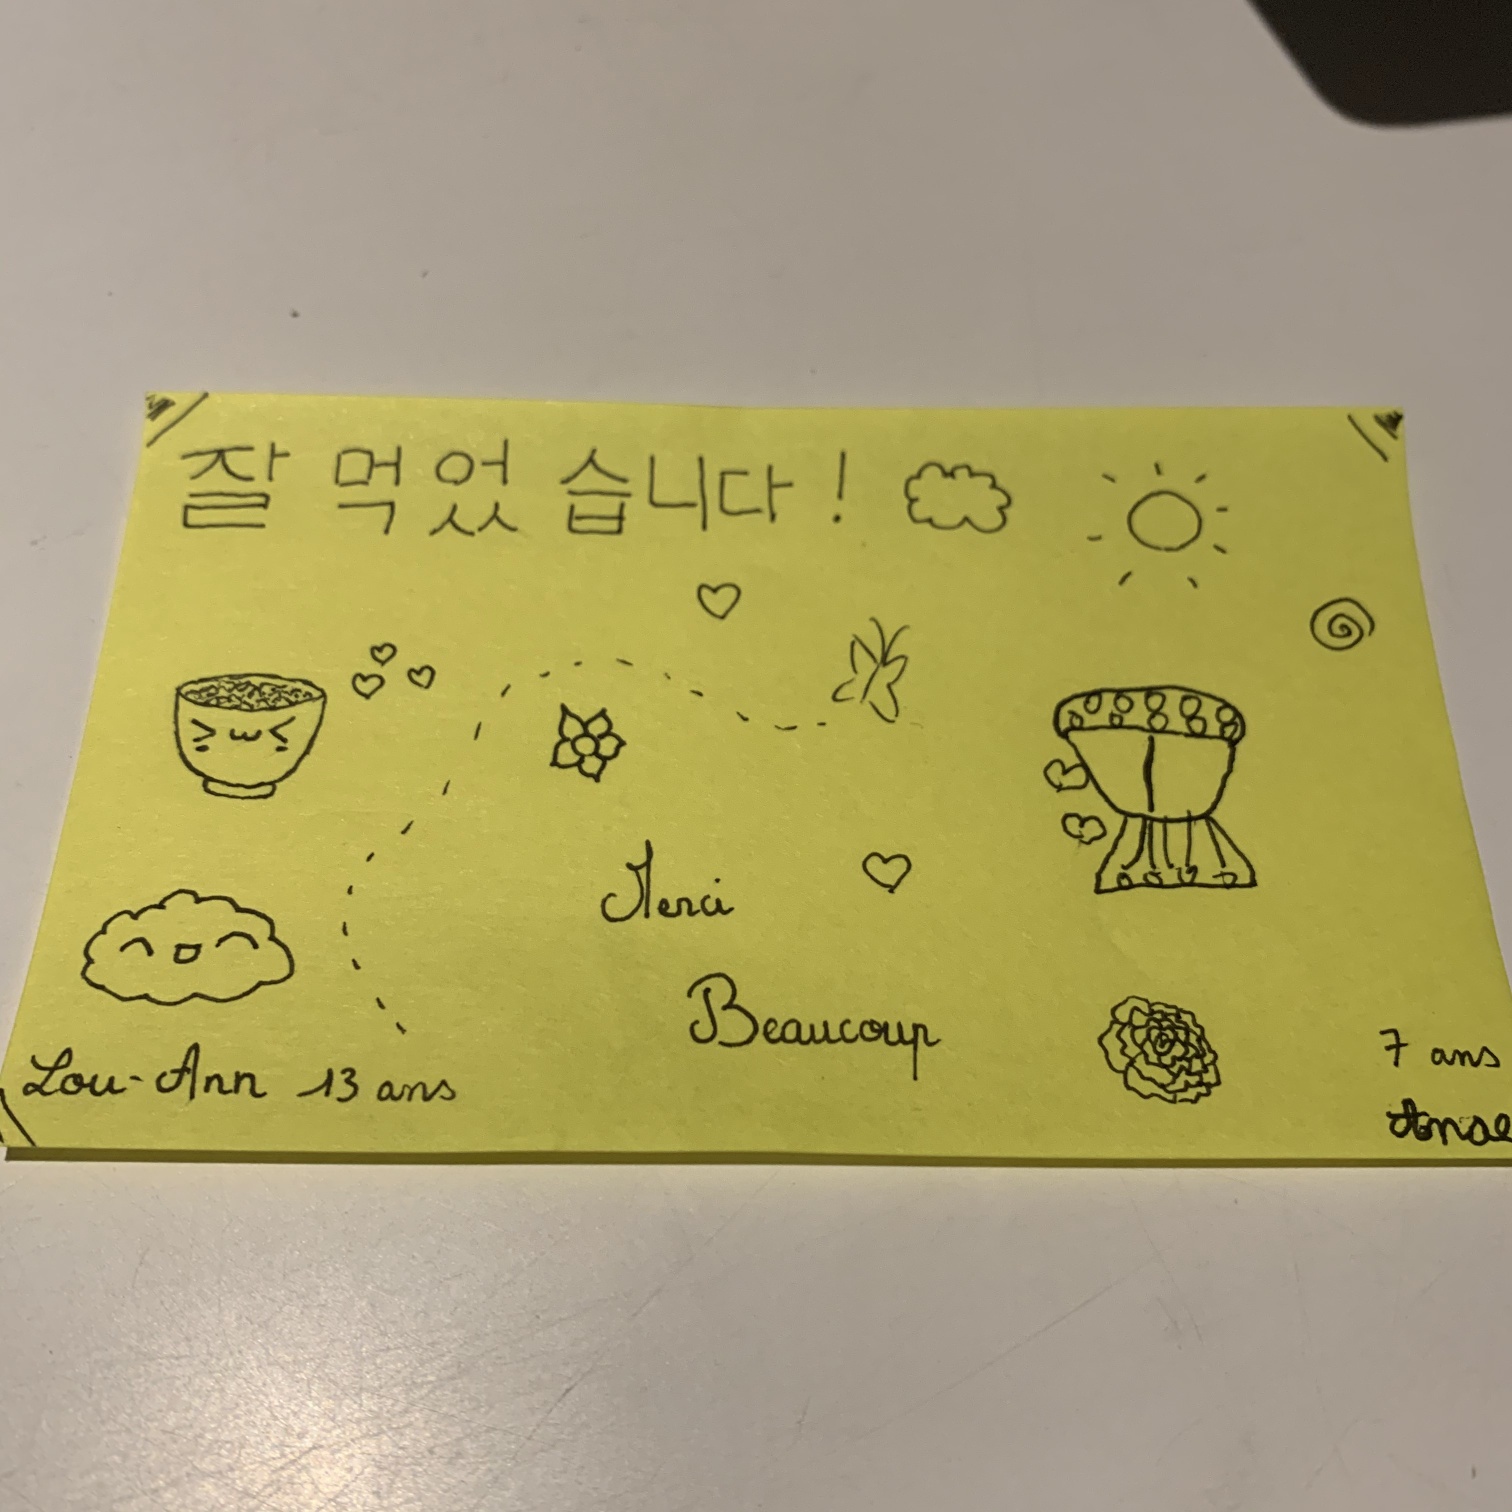 잘 먹었습니다!
Merci
Beaucoup
Lou-Ann 13 ans
7 ans